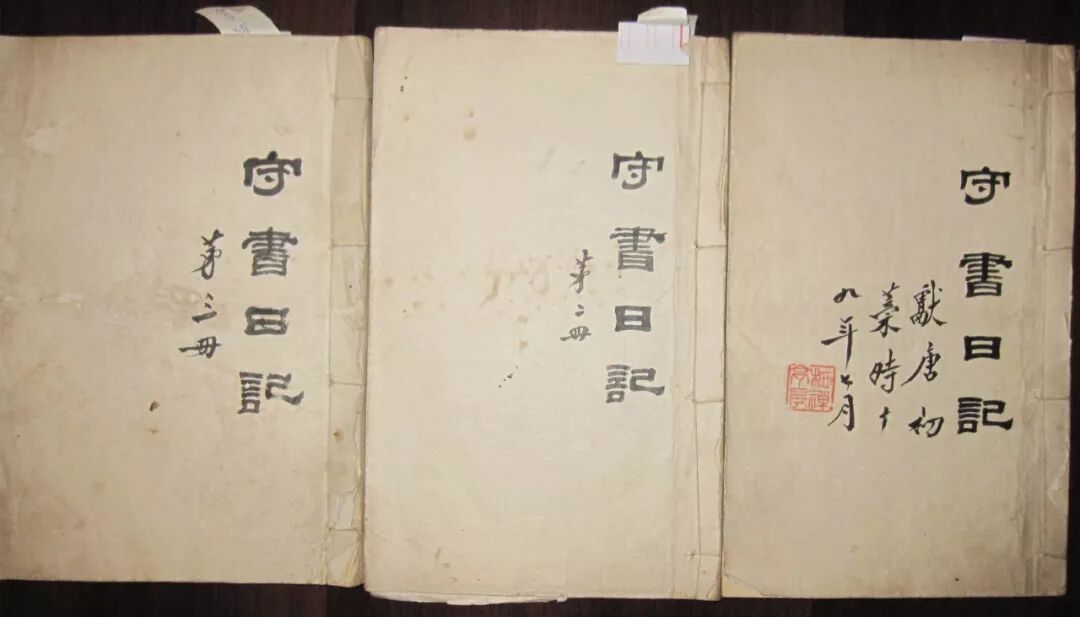 守書日記
獻唐初
藁時十
九年七月
守書日記
第二冊
守書日記
第三冊